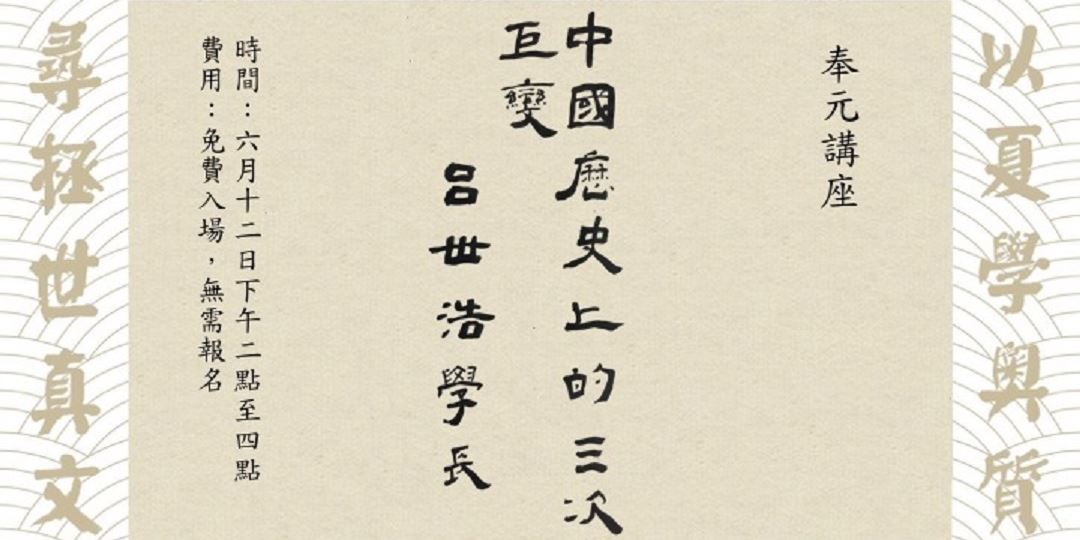 以夏學奧質
奉元講座
中國歷史上的三次
巨變
呂世浩學長
時間：六月十二日下午二點至四點
費用：免費入場，無需報名
尋拯世真文